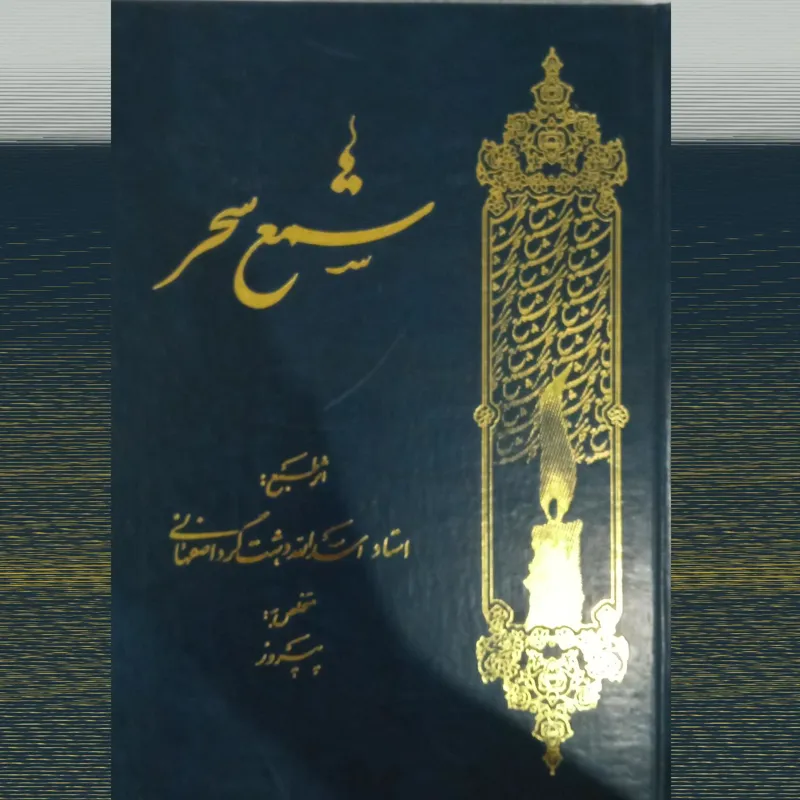 شمع سحر
اثر طبع:
استاد اسدالله دشت گرد اصفهانی
متخلص به:
پیروز